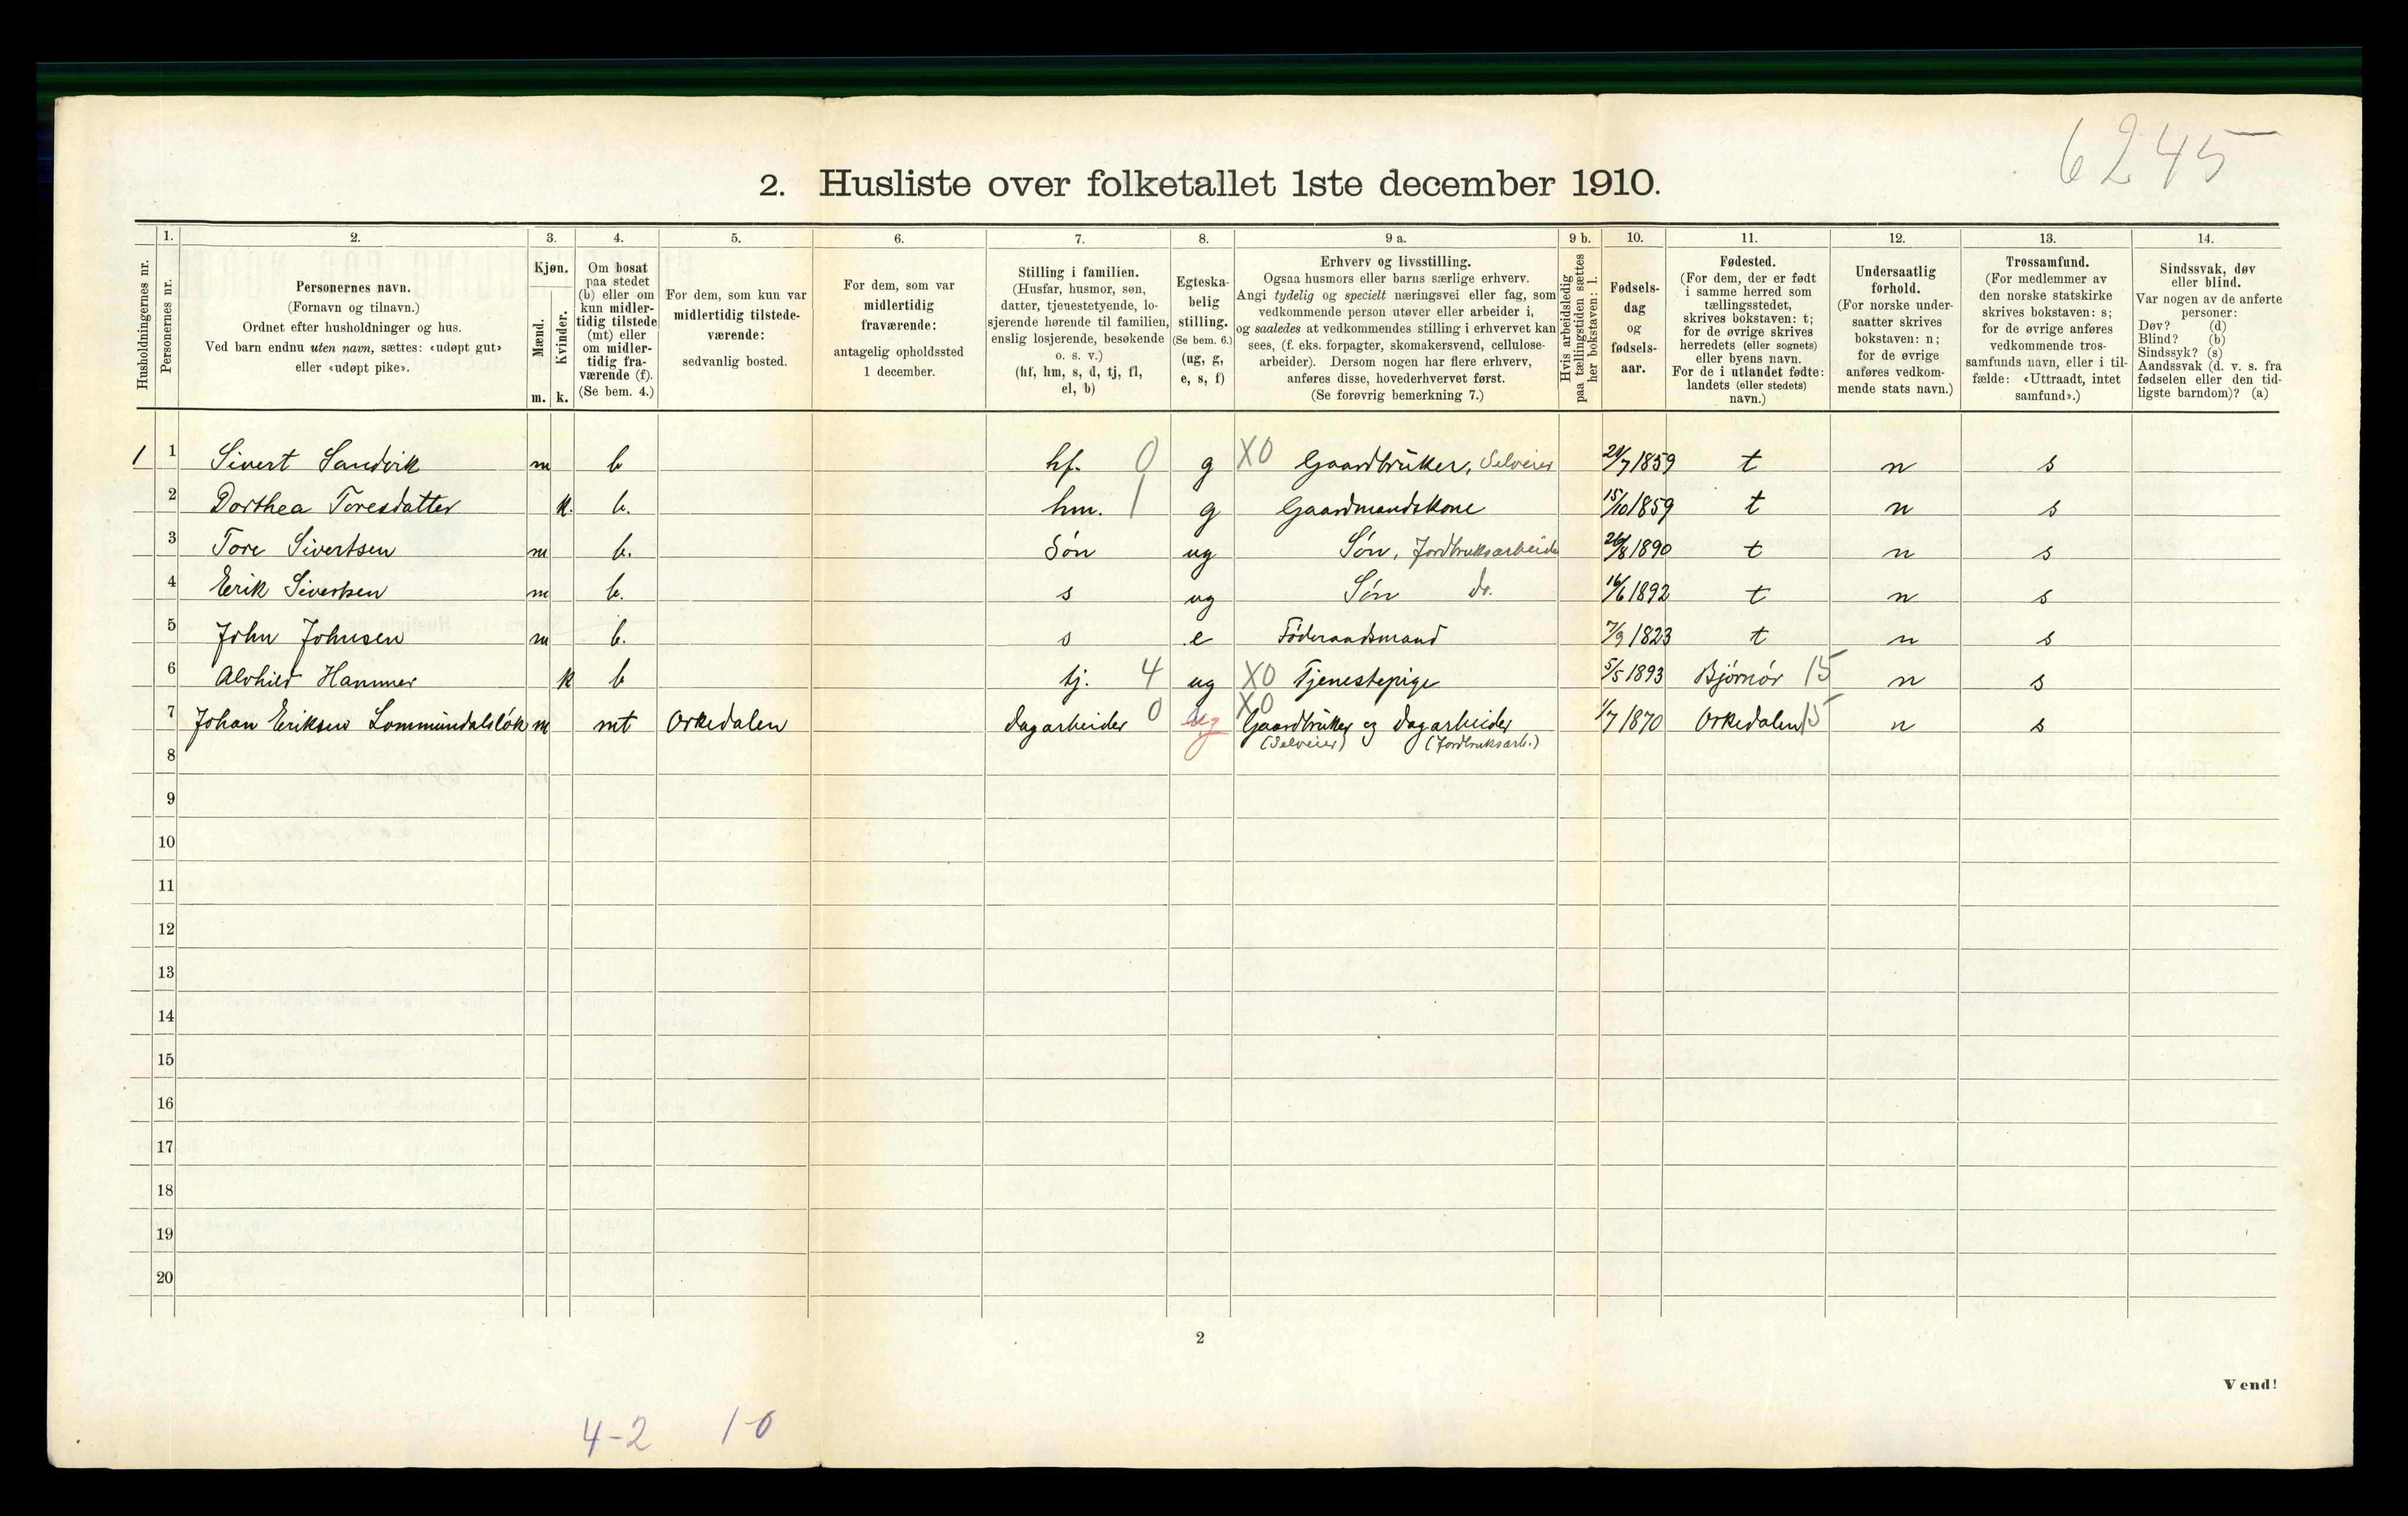 6245
2. Husliste over folketallet 1ste december 1910.
Husholdningernes nr.
1.
Personernes nr.
2.
Personernes navn.
(Fornavn og tilnavn.)
Ordnet efter husholdninger og hus.
Ved barn endnu uten navn, sættes: «udøpt gut»
eller «udøpt pike».
3.
Kjøn.
Mænd.
Kvinder.
m. k.
4.
Om bosat
paa stedet
(b) eller om
kun midler-
tidig tilstede
(mt) eller
om midler-
tidig fra-
værende (f).
(Se bem. 4.)
5.
For dem, som kun var
midlertidig tilstede-
værende:
sedvanlig bosted.
6.
For dem, som var
midlertidig
fraværende:
antagelig opholdssted
1 december.
7.
Stilling i familien.
(Husfar, husmor, søn,
datter, tjenestetyende, lo-
sjerende hørende til familien,
enslig losjerende, besøkende
o. s. v.)
(hf, hm, s, d, tj, fl,
el, b)
8.
Egteska-
belig
stilling.
(Se bem. 6.)
(ug, g,
e, s, f)
9 a.
Erhverv og livsstilling.
Ogsaa husmors eller barns særlige erhverv.
Angi tydelig og specielt næringsvei eller fag, som
vedkommende person utøver eller arbeider i,
og saaledes at vedkommendes stilling i erhvervet kan
sees, (f. eks. forpagter, skomakersvend, cellulose-
arbeider). Dersom nogen har flere erhverv,
anføres disse, hovederhvervet først.
(Se forøvrig bemerkning 7.)
9 b.
Hvis arbeidsledig
paa tællingstiden sættes
her bokstaven: l.
10.
Fødsels-
dag
og
fødsels-
aar.
11.
Fødested.
(For dem, der er født
i samme herred som
tællingsstedet,
skrives bokstaven: t;
for de øvrige skrives
herredets (eller sognets)
eller byens navn.
For de i utlandet fødte:
landets (eller stedets)
navn.)
12.
Undersaatlig
forhold.
(For norske under-
saatter skrives
bokstaven: n;
for de øvrige
anføres vedkom-
mende stats navn.)
13.
Trossamfund.
(For medlemmer av
den norske statskirke
skrives bokstaven: s;
for de øvrige anføres
vedkommende tros-
samfunds navn, eller i til-
fælde: «Uttraadt, intet
samfund».)
14.
Sindssvak, døv
eller blind.
Var nogen av de anførte
personer:
Døv? (d)
Blind? (b)
Sindssyk? (s)
Aandssvak (d. v. s. fra
fødselen eller den tid-
ligste barndom)? (a)
1 1 Sivert Sandvik m b hf. 0 g X0 Gaardbruker, Selveier /7 1859 t n s
2 Dorthea Toresdatter k. b. hm. 1 g Gaardmandskone 15/10 1859 t n s
3 Tore Sivertsen m b. Søn ug Søn, Jordbruksarbeide 26/8 1890 t n s
4 Erik Sivertsen m b. s ug Søn do. 16/6 1892 t n s
5 John Johnsen m b. s e Føderaadsmand 7/9 1823 t n s
6 Alvhild Hammer k b tj. 4 ug X0 Tjenestepige 5/5 1893 Bjørnør 15 n s
7 Johan Eriksen Lommundalsløk m mt Orkedalen dagarbeider 0 ug X0 Gaardbruker og dagarbeider 1/7 1870 Orkedalen 15 n s
(Selveier) (Jordbruksarb.)
8
9
10
11
12
13
14
15
16
17
18
19
20
2
Vend!
4-2 1-0